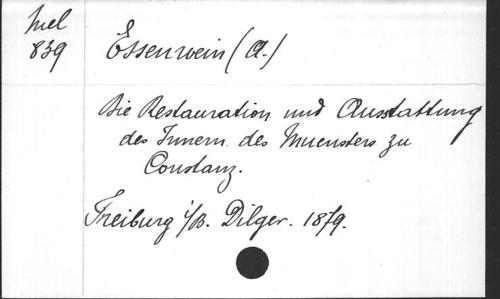 Mel
839
Essenwein (A.)
Die Restauration und Ausstattung
des Innern des Muensters zu
Constanz.
Freiburg i/B. Dilger. 1879.